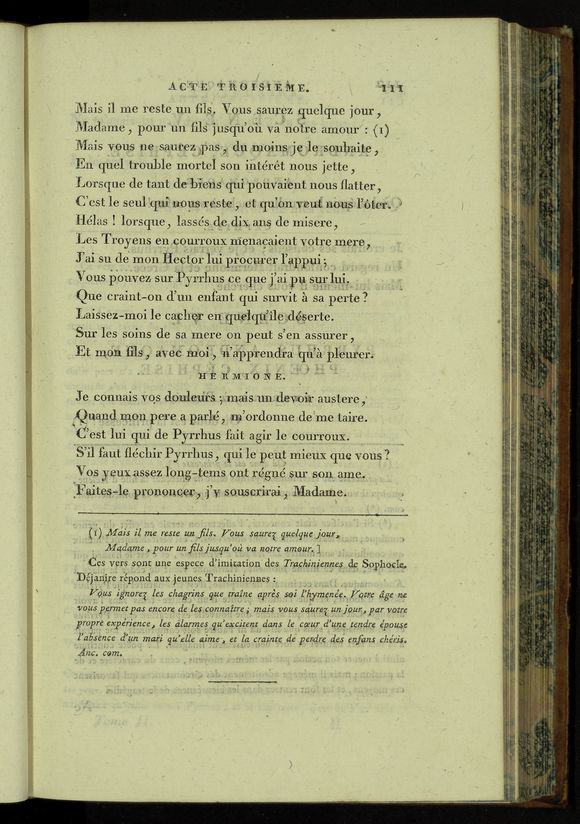 ACTE TROISIEME. 111
Mais il me reste un fils. Vous saurez quelque jour,
Madame, pour un fils jusqu'où va notre amour : (1)
Mais vous ne saurez pas, du moins je le souhaite,
En quel trouble mortel son intérêt nous jette,
Lorsque de tant de biens qui pouvaient nous flatter,
C'est le seul qui nous reste, et qu'on veut nous l'ôter.
Hélas ! lorsque, lassés de dix ans de misere,
Les Troyens en courroux menaçaient votre mere,
J'ai su de mon Hector lui procurer l'appui ;
Vous pouvez sur Pyrrhus ce que j'ai pu sur lui.
Que craint-on d'un enfant qui survit à sa perte ?
Laissez-moi le cacher en quelqu'île déserte.
Sur les soins de sa mere on peut s'en assurer,
Et mon fils, avec moi, n'apprendra qu'à pleurer.
HERMIONE.
Je connais vos douleurs ; mais un devoir austere,
Quand mon pere a parlé, m'ordonne de me taire.
C'est lui qui de Pyrrhus fait agir le courroux.
S'il faut fléchir Pyrrhus, qui le peut mieux que vous ?
Vos yeux assez long-tems ont régné sur son ame.
Faites-le prononcer, j'y souscrirai, Madame.
(1) Mais il me reste un fils. Vous saurez quelque jour,
Madame, pour un fils jusqu'où va notre amour. ]
Ces vers sont une espece d'imitation des Trachiniennes de Sophocle.
Déjanire répond aux jeunes Trachiniennes :
Vous ignorez les chagrins que traîne après soi l'hymenée. Votre âge ne
vous permet pas encore de les connaître ; mais vous saurez un jour, par votre
propre expérience, les álarmes qu'excitent dans le cœur d'une tendre épouse
l'absence d'un mari qu'elle aime, et la crainte de perdre des enfans chéris.
Anc. com.